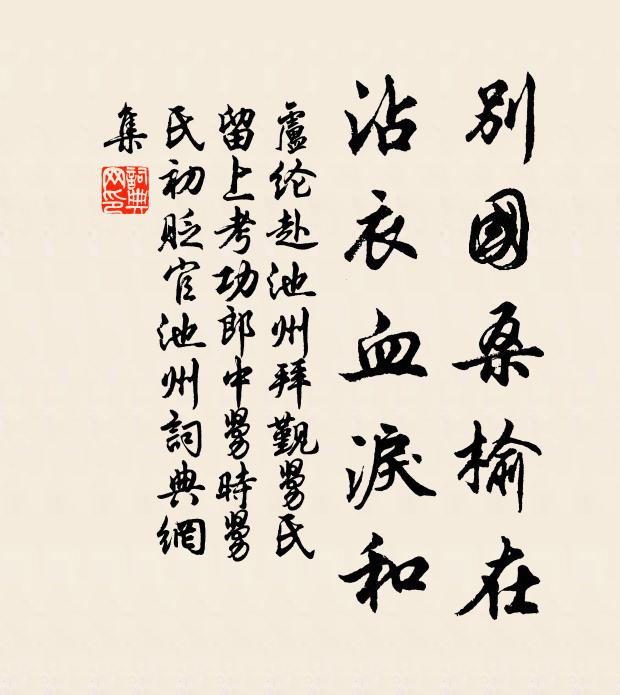 別國桑榆在
沾衣血淚和
盧纶赴池州拜覲舅氏
留上考功郎中舅時舅
氏初貶官池州詞典網
集
詞典
网印